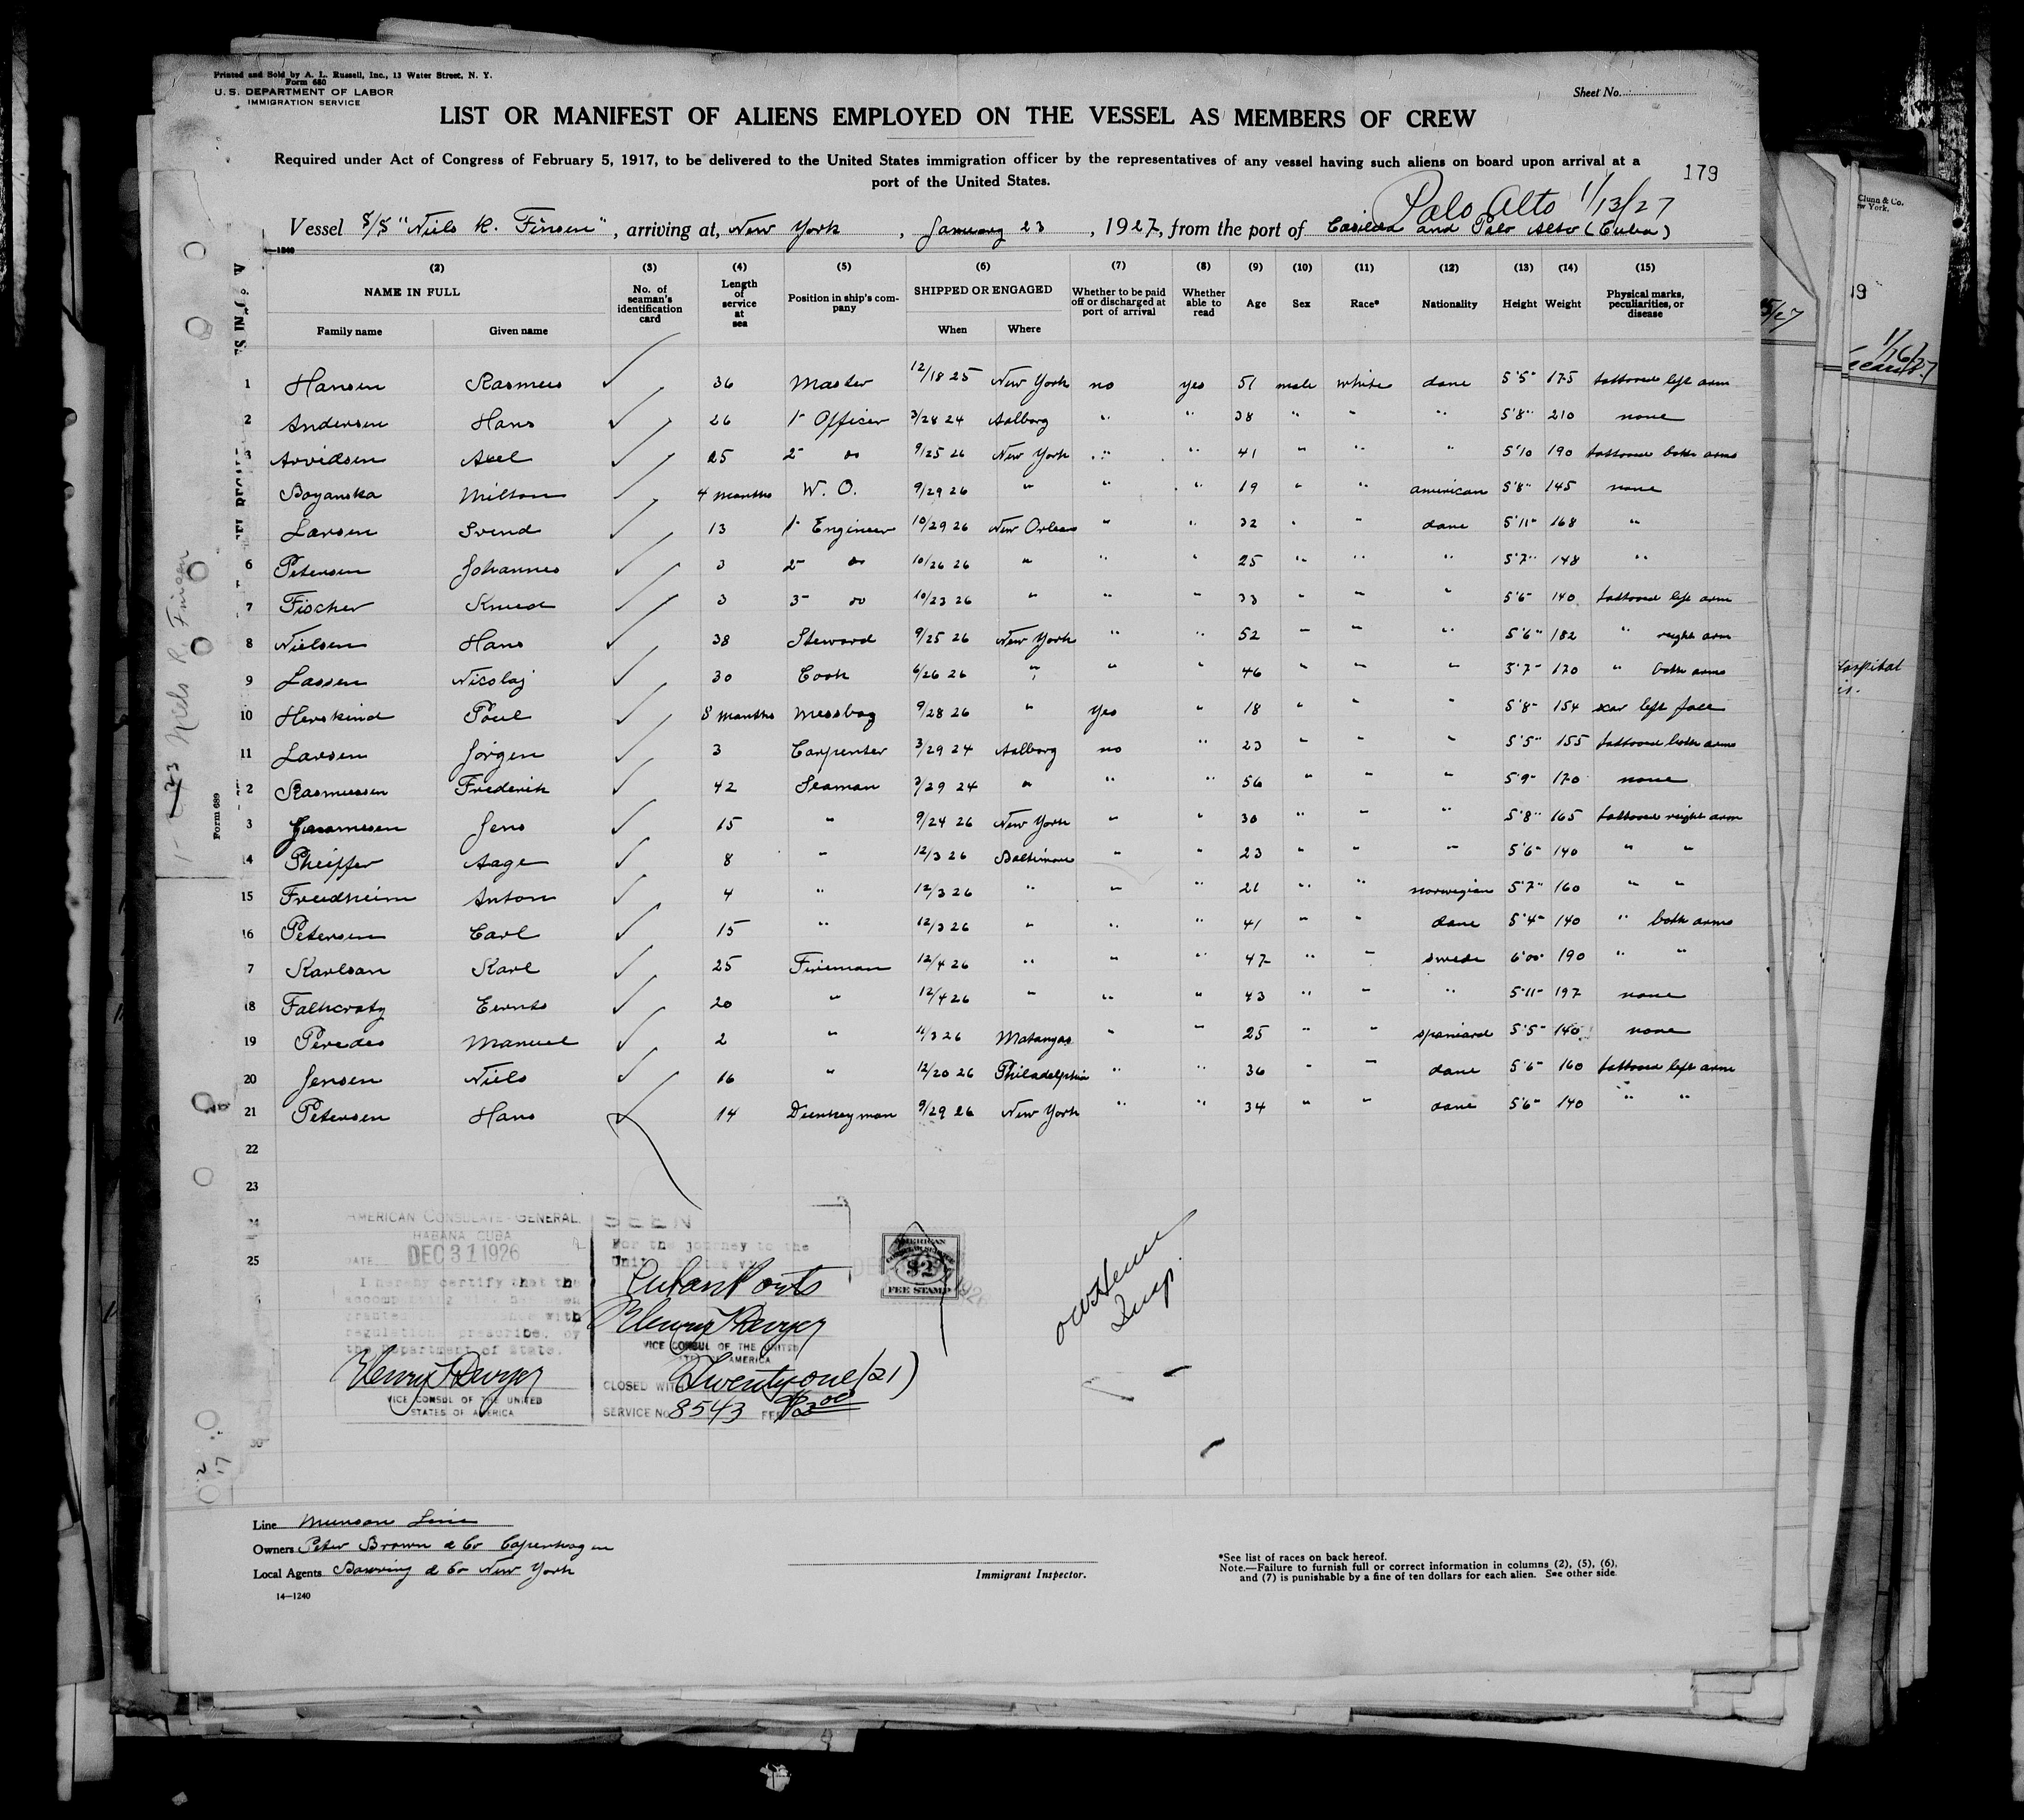 Printed and Sold by A. L. Russell, Inc., 13 Water Street, N. Y.
Form 680
U. S. DEPARTMENT OF LABOR
IMMIGRATION SERVICE
Sheet No.
LIST OR MANIFEST OF ALIENS EMPLOYED ON THE VESSEL AS MEMBERS OF CREW
Required under Act of Congress of February 5, 1917, to be delivered to the United States immigration officer by the representatives of any vessel having such aliens on board upon arrival at a
port of the United States.
179
Palo Alto 1/13/27
Vessel S/S "Niels R. Finsen", arriving at, New York, January 23, 1927, from the port of Casilda and Palo Alto (Cuba)
(2) (3) (4) (5) (6) (7) (8) (9) (10) (11) (12) (13) (14) (15)
NAME IN FULL No. of seaman's identification card Length of service at sea Position in ship's company SHIPPED OR ENGAGED Whether to be paid off or discharged at port of arrival Whether able to read Age Sex Race* Nationality Height Weight Physical marks, peculiarities, or disease
Family name Given name When Where
1 Hansen Rasmus 36 Master 12/18 25 New York no yes 51 male white dane 5'5" 175 tattooed left arm
2 Andersen Hans 26 1- Officer 3/28 24 Aalborg " " 38 " " " 5'8" 210 none
3 Arvidsen Axel 25 2- do 9/25 26 New York " " 41 " " " 5'10 190 tattooed both arms
Boyanska Milton 4 months W. O. 9/29 26 " " " 19 " " american 5'8" 145 none
Larsen Svend 13 1- Engineer 10/29 26 New Orleans " " 32 " " dane 5'11" 168 "
6 Petersen Johannes 3 2- do 10/26 26 " " " 25 " " " 5'7" 148 "
7 Fischer Knud 3 3- do 10/23 26 " " " 33 " " " 5'6" 140 tattooed left arm
8 Nielsen Hans 38 Steward 9/25 26 New York " " 52 " " " 5'6" 182 " right arm
9 Lassen Nicolaj 30 Cook 6/26 26 " " " 46 " " " 5'7" 170 " both arms
10 Herskind Poul 8 months Messboy 9/28 26 " Yes " 18 " " " 5'8" 154 scar left face
11 Larsen Jörgen 3 Carpenter 3/29 24 Aalborg no " 23 " " " 5'5" 155 tattooed both arms
2 Rasmussen Frederik 42 Seaman 3/29 24 " " " 56 " " " 5'9" 170 none
3 Jens 15 " 9/24 26 New York " " 30 " " " 5'8" 165 tattooed right arm
14 Pheiffer Aage 8 " 12/3 26 Baltimore " " 23 " " " 5'6" 140 " "
15 Freidheim Anton 4 " 12/3 26 " " " 21 " " norwegian 5'7" 160 " "
16 Petersen Carl 15 " 12/3 26 " " " 41 " " dane 5'4" 140 " both arms
7 Karlson Karl 25 Fireman 12/4 26 " " " 47 " " swede 6'00" 190 " "
18 20 " 12/4 26 " " " 43 " " " 5'11" 197 none
19 Peredes Manuel 2 " 11/3 26 Matanzas " " 25 " " spaniard 5'5" 140 none
20 Jensen Niels 16 " 12/20 26 Philadelphia " " 36 " " dane 5'6" 160 tattooed left arm
21 Petersen Hans 14 Dunkeyman 9/29 26 New York " " 34 " " dane 5'6" 140 " "
22
23
24
25
30
Form 689
Niels R. Finsen
AMERICAN CONSULATE-GENERAL,
HABANA CUBA
DATE DEC 31 1926
I hereby certify that the
accompanying visa has been
granted in accordance with
regulations prescribe, by
the Department of State.
Henry
VICE CONSUL OF THE UNITED
STATES OF AMERICA
SEEN
For the journey to the
United States via
Cuban Ports
Henry
VICE CONSUL OF THE UNITED
STATES OF AMERICA
CLOSED WITH Twenty one (21)
SERVICE No 8543 FEE $2.00
AMERICAN
CONSULAR SERVICE
$2
FEE STAMP
Insp.
Line Munson Line
Owners Peter Brown & Co Copenhagen
Local Agents Bowring & Co New York
14—1240
Immigrant Inspector.
*See list of races on back hereof.
Note.—Failure to furnish full or correct information in columns (2), (5), (6),
and (7) is punishable by a fine of ten dollars for each alien. See other side.
Clunn & Co.
ew York.
Hospital